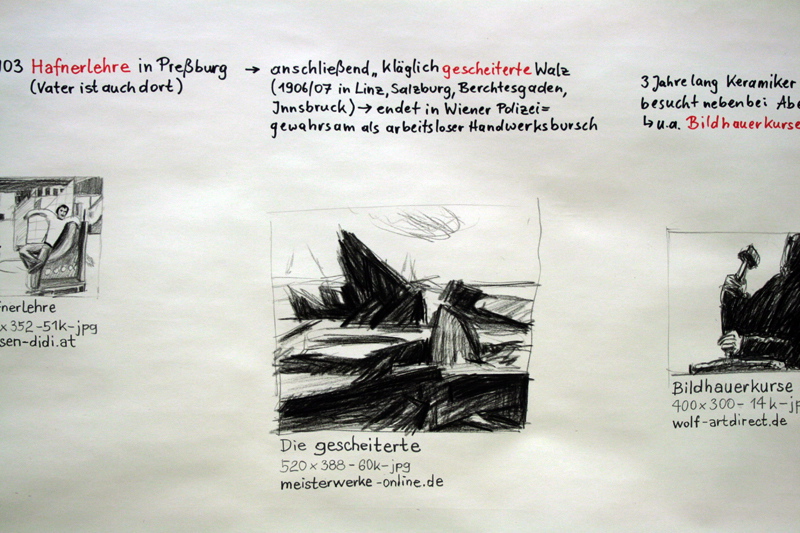 103 Hafnerlehre in Preßburg →
(Vater ist auch dort)
anschließend „ kläglich gescheiterte Walz
(1906/07 in Linz, Salzburg, Berchtesgaden,
Innsbruck) → endet in Wiener Polizei=
gewahrsam als arbeitsloser Handwerksbursch
3 Jahre lang Keramiker
besucht nebenbei Abe
↳ u.a. Bildhauerkurse
fnerlehre
x 352 - 51k - jpg
sen-didi.at
Die gescheiterte
520 x 388 - 60k - jpg
meisterwerke-online.de
Bildhauerkurse
400 x 300 - 14k - jp
wolf-artdirect.de